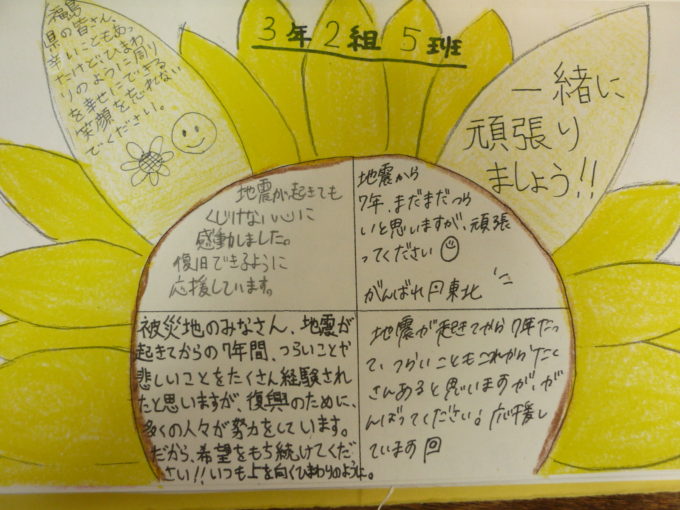 3年2組5班
福島
県の皆さん、
辛いこともあっ
たけど、ひまわ
りのように周り
を幸せにできる
笑顔を忘れない
でください。
一緒に
頑張り
ましょう!!
地震が起きても
くじけない心に
感動しました。
復旧できるように
応援しています。
地震から
7年、まだまだつら
いと思いますが、頑張
ってください
がんばれ 東北
被災地のみなさん、地震が
起きてからの7年間、つらいことや
悲しいことをたくさん経験され
たと思いますが、復興のために、
多くの人々が努力をしています。
だから、希望をもち続けてくだ
さい!!いつも上を向くひまわりのように。
地震が起きてから7年たっ
て、つらいこともこれからたく
さんあると思いますが、が
んばってください!応援し
ています